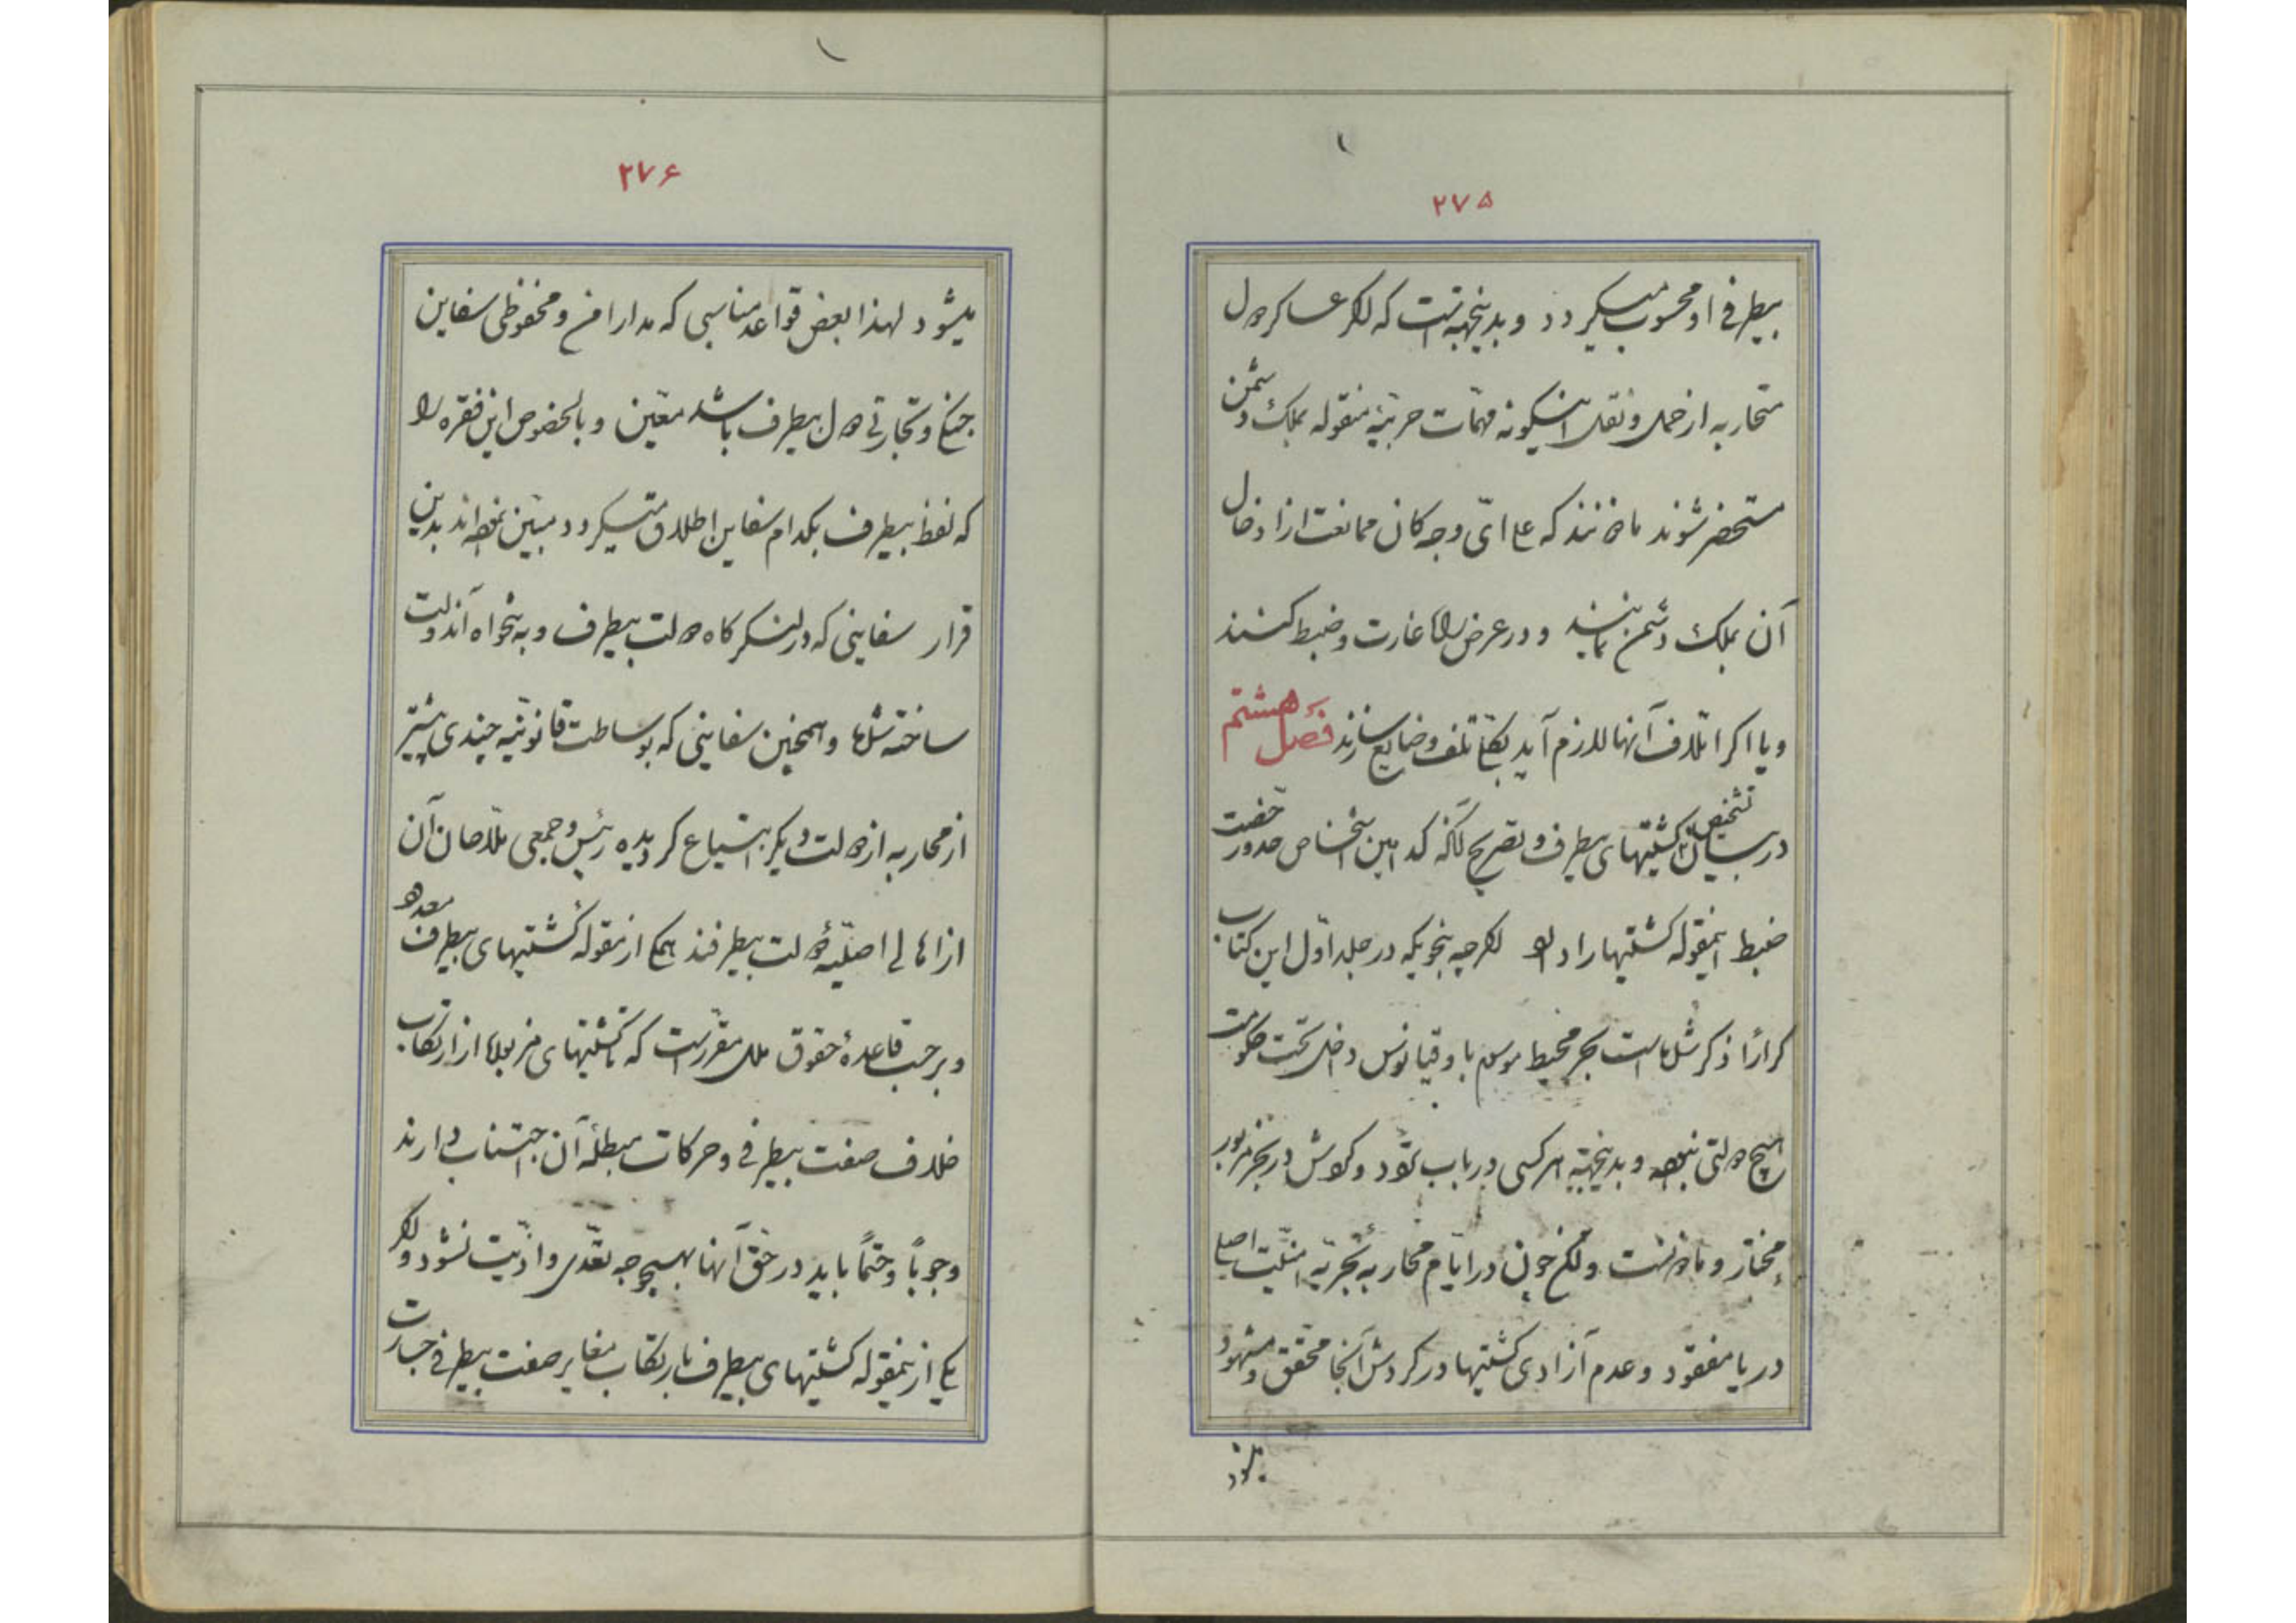 ۲۷۵
بیطرفی او محسوب میگردد و بدینجهة است که اگر عساکر دول
متحاربه از حمل و نقل اینگونه مهمّات حربیّهٔ منقوله بملک دشمن
مستحضر شوند ماذونند که علی ایّ وجه کان ممانعت از ادخال
آن بملک دشمن نمایند و در عرض راه غارت و ضبط کنند
و یا اگر اتلاف آنها لازم آید بکلّی تلف و ضایع سازند فصل هشتم
در بیان تشخیص کشتیهای بیطرف و تصریح آنکه کدامین اشخاص حدور خصت
ضبط اینمقوله کشتیها را دارد اگرچه بنحویکه در جلد اوّل این کتاب
کراراً ذکر شده است بحر محیط موسوم باوقیانوس داخل تحت حکومت
هیچ دولتی نبوده و بدینجهة هر کسی در باب تردّد و گردش در بحر مزبور
مختار و ماذونست ولکن چون در ایّام محاربهٔ بحریّه امنیّت اصلی
دریا مفقود و عدم آزادی کشتیها در گردش آنجا محقّق و مشهود
میشود
۲۷۶
میشود لهذا بعض قواعد مناسبی که مدار امن و محفوظی سفاین
جنگی و تجارتی دول بیطرف باشد معیّن و بالخصوص این فقره را
که لفظ بیطرف بکدام سفاین اطلاق میگردد مبیّن نموده‌اند بدین
قرار سفاینی که در لنگرگاه دولت بیطرف و بدلخواه آندولت
ساخته شده و همچنین سفاینی که بوساطت قانونیّه چندی پیشتر
از محاربه از دولت دیگر ابتیاع گردیده رئیس و جمعی ملاحان آن
از اهالی اصلیّهٔ دولت بیطرفند همگی از مقوله کشتیهای بیطرف معدوده
و بر حسب قاعدهٔ حقوق ملل مقرّر است که تا کشتیهای مزبوره از ارتکاب
خلاف صفت بیطرفی و حرکات مبطلهٔ آن اجتناب دارند
وجوباً و حتماً باید در حقّ آنها بهیچوجه تعدّی و اذیّت نشود و اگر
یکی از اینمقوله کشتیهای بیطرف بارتکاب مغایر صفت بیطرفی جسارت